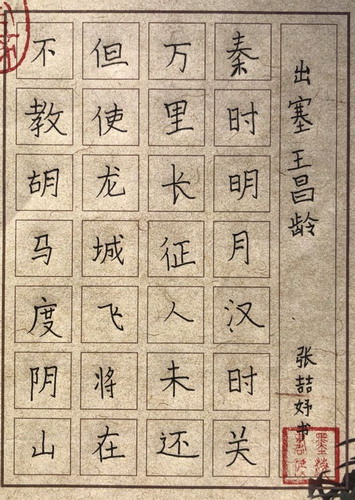 出塞 王昌龄
秦时明月汉时关
万里长征人未还
但使龙城飞将在
不教胡马度阴山
张喆妤书